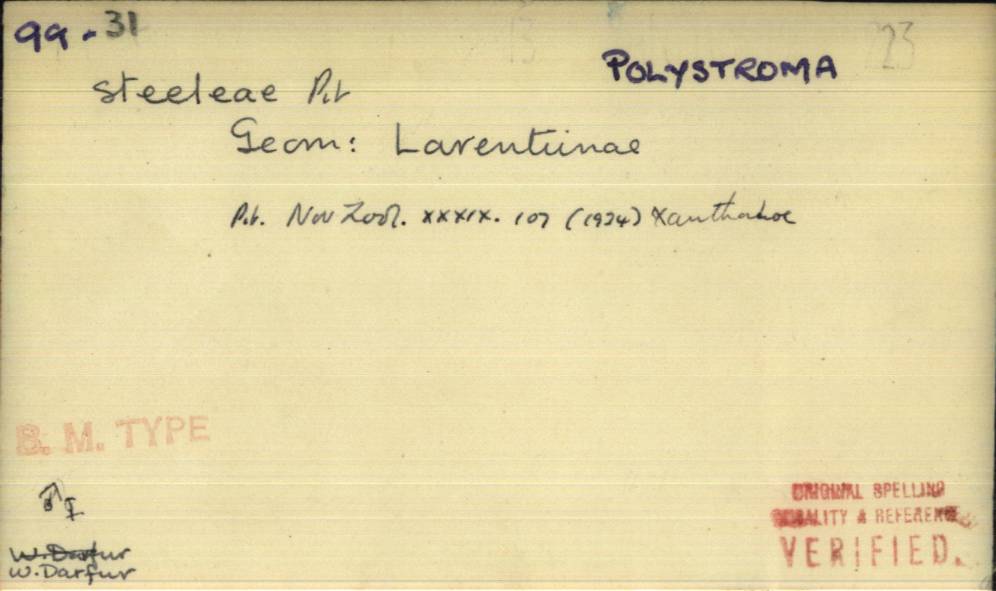 99.31
23
POLYSTROMA
steeleae Pit
Geom: Larentiinae
Pit. Nov Zool. XXXIX. 107 (1934) Xanthorhoe
B. M. TYPE
♂ ♀
W. Darfur
W. Darfur
ORIGINAL SPELLING
LOCALITY & REFERENCE
VERIFIED.